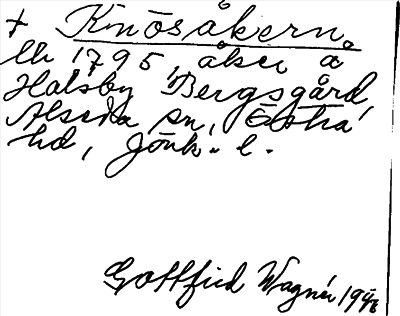 + Knösåkern
Lh 1795, åker å
Holsby Bergsgård,
Alseda sn, Östra
hd, Jönk. l.
Gottfrid Wagnér 1948